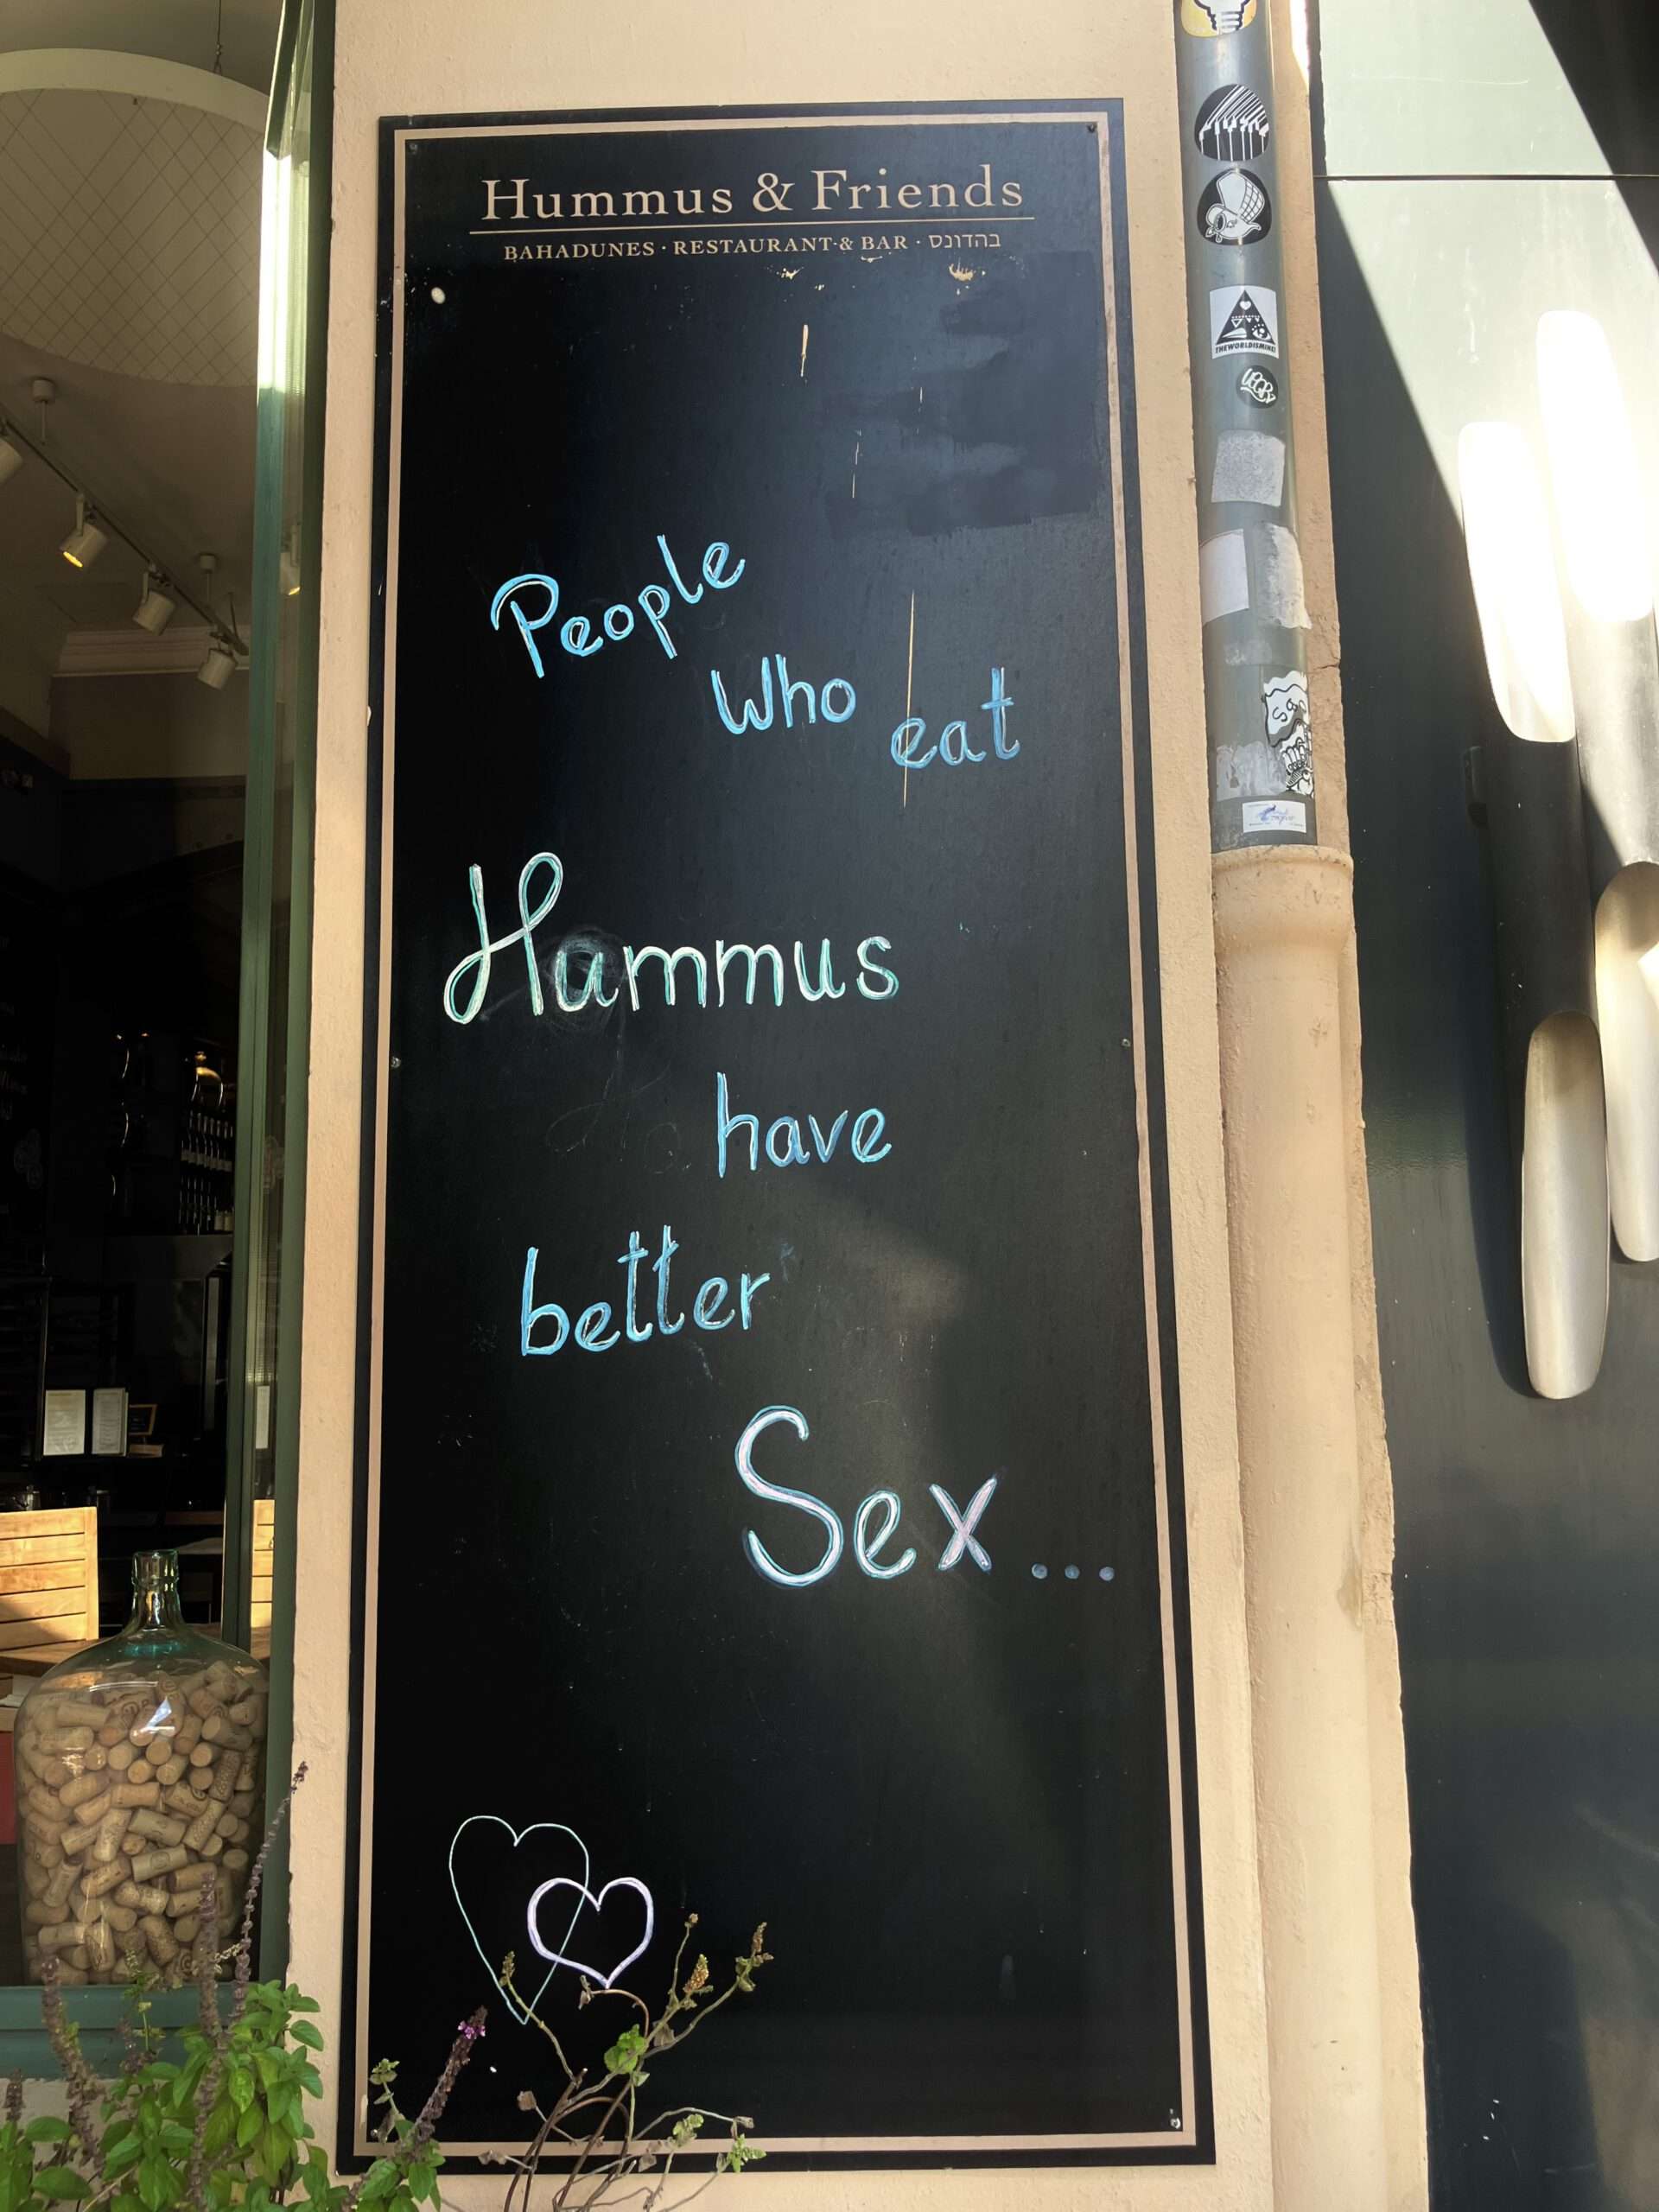 Hummus & Friends
BAHADUNES · RESTAURANT & BAR · בהדונס
People
Who eat
Hummus
have
better
Sex...
THEWORLDISMINE!